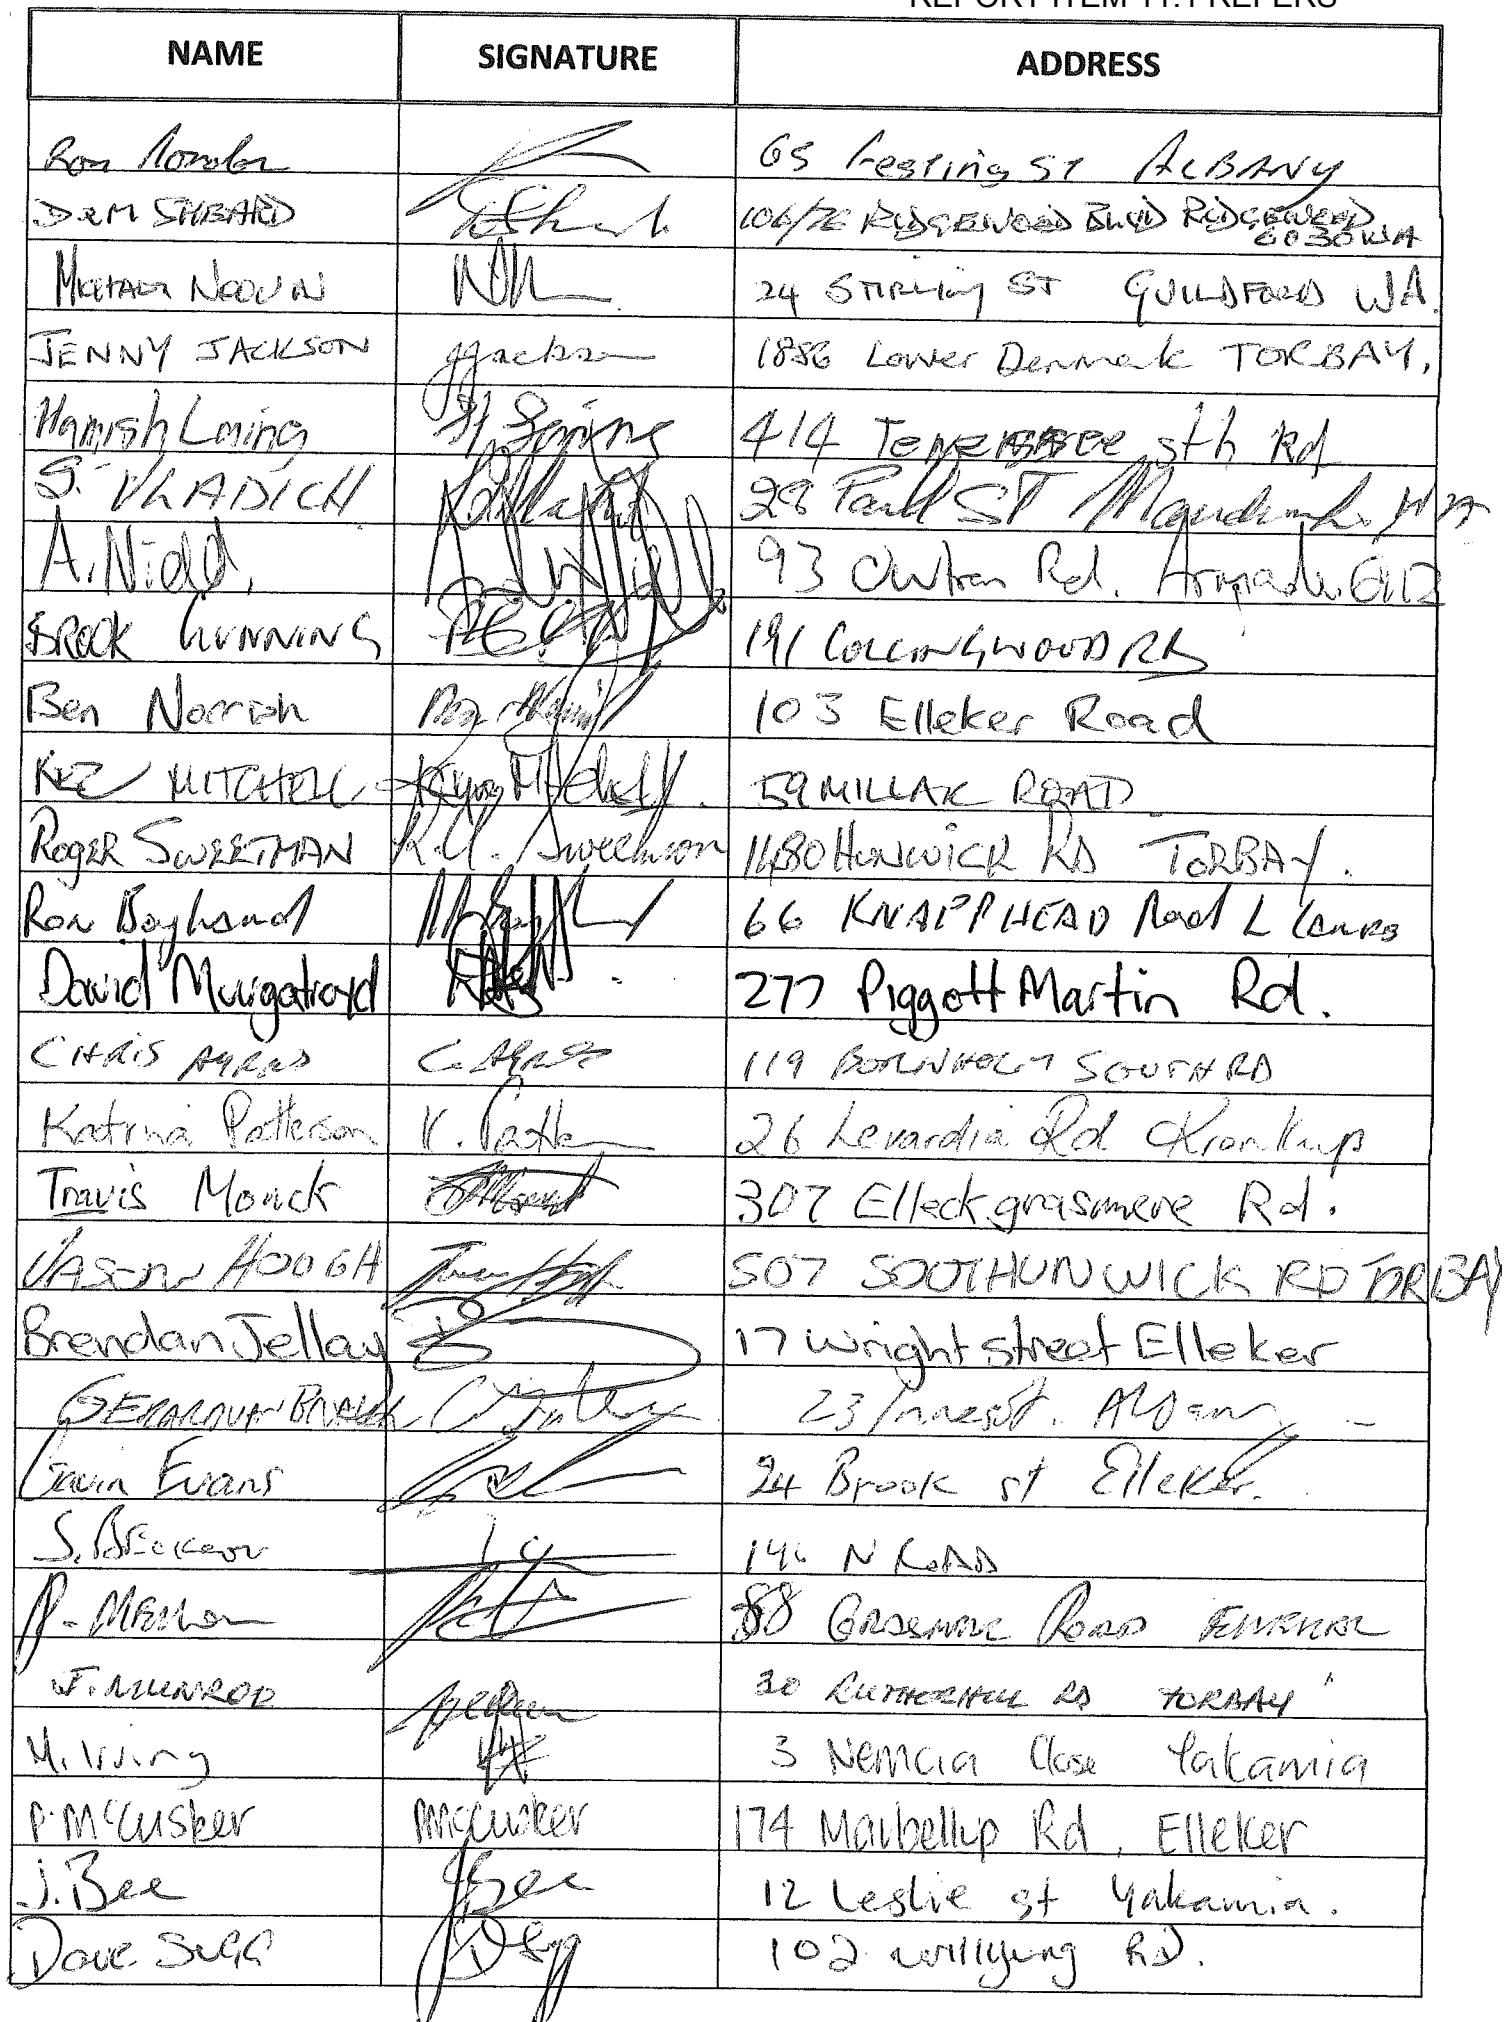 REPORT ITEM 11.1 REFERS
NAME SIGNATURE ADDRESS
Ron 65 Festing St ALBANY
D&M SHEARD 106/76 RIDGEWOOD BLVD RIDGEWOOD
6030 WA
24 STIRLING ST GUILDFORD WA.
JENNY JACKSON JJackson 1886 Lower Denmark TORBAY.
Hamish Laing H. Laing 414 sth Rd
S. VLADICH 28 St WA
A. Nidd. 93 Rd. 6112
BROOK GUNNING 191 COLLINGWOOD RD
Ben Norrish 103 Elleker Road
KEZ MITCHELL Mitchell 59 MILLAR ROAD
ROGER SWEETMAN Sweetman HUNWICK RD TORBAY.
Ron 66 KNAPP HEAD Road
David Murgatroyd 277 Piggott Martin Rd.
CHRIS AYRES C. AYRES 119 BORNHOLM SOUTH RD
Katrina Patterson K. 26 Levardia Rd Kronkup
Travis Monck 307 Elleck grasmere Rd.
JASON HOOGH 507 SOOTHUNWICK RD TORBAY
Brendan Jellay 17 Wright street Elleker
23 Innes St. Albany
Gavin Evans 24 Brook st Elleker.
S. N ROAD
88 Road
J. MUNROD 30 RD TORBAY
M. Irving 3 Nemcia Close Yakamia
P. McCusker PMcCusker 174 Marbellup Rd, Elleker
J. Bee JBee 12 Leslie st Yakamia.
Dave SUGG 102 Willyung RD.